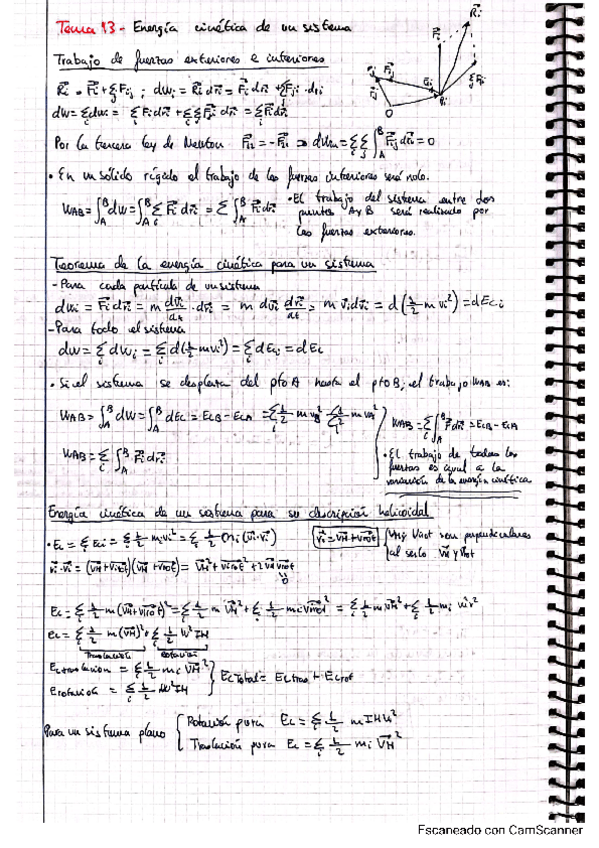 Tema 13 - Energía cinética de un sistema
Trabajo de fuerzas exteriores e interiores
R⃗i = F⃗i + ΣF⃗ij ; dWi = R⃗i dr⃗i = F⃗i dr⃗i + ΣF⃗ji · dri
dW = Σ dWi = Σ F⃗i dr⃗i + ΣΣ F⃗ji dr⃗i = Σ F⃗i dr⃗i
Por la tercera ley de Newton
• En un sólido rígido el trabajo de las fuerzas interiores será nulo.
WAB = ∫ dW = ∫ Σ F⃗i dr⃗i = Σ ∫ F⃗i dr⃗i
• El trabajo del sistema entre dos
puntos A y B será realizado por
las fuerzas exteriores.
Teorema de la energía cinética para un sistema
- Para cada partícula de un sistema
dWi = F⃗i dr⃗i = m dv⃗i/dt · dr⃗i = m dv⃗i dr⃗i/dt = m v⃗i dv⃗i = d(1/2 m vi²) = dEci
- Para todo el sistema
dW = Σ dWi = Σ d(1/2 mvi²) = Σ dEci = dEc
• Si el sistema se desplaza del pto A hasta el pto B, el trabajo WAB es:
WAB = ∫ dW = ∫ dEc = EcB - EcA
WAB = Σ ∫ F⃗i dr⃗i
WAB = Σ ∫ F⃗i dr⃗i = EcB - EcA
• El trabajo de todas las
fuerzas es igual a la
variación de la energía cinética
Energía cinética de un sistema para su descripción helicoidal
• Ec = Σ Eci = Σ 1/2 mi vi² = Σ 1/2 mi (v⃗i · v⃗i)
v⃗i = v⃗H + v⃗rot
VH y Vrot son perpendiculares
al serlo
v⃗i · v⃗i = (v⃗H + v⃗rot)(v⃗H + v⃗rot) = v⃗H² + v⃗rot² + 2 v⃗H v⃗rot
0
Traslación Rotación
Ec traslación = Σ 1/2 mi v⃗H²
E rotación = Σ 1/2 W² IH
Ec Total = Ec tras + Ec rot
Para un sistema plano
Rotación pura
Traslación pura Ec = Σ 1/2 mi v⃗H²
Escaneado con CamScanner